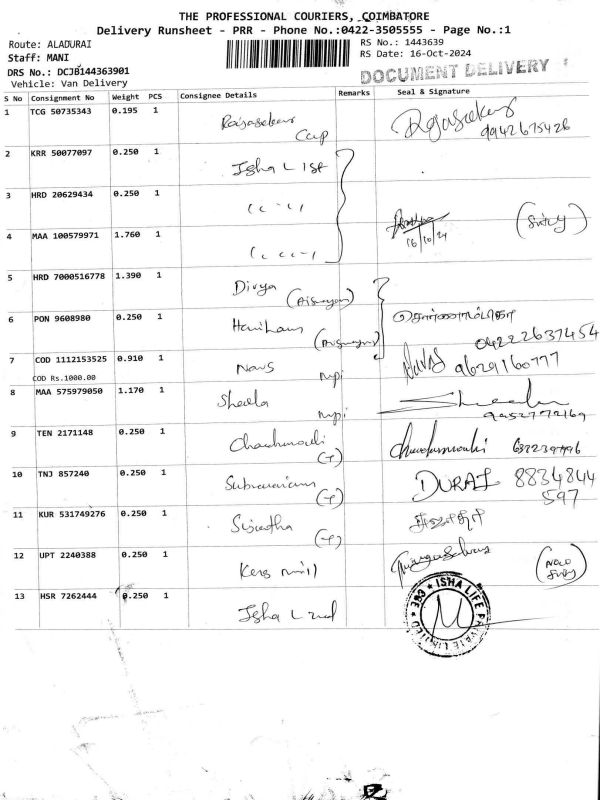 THE PROFESSIONAL COURIERS, COIMBATORE
Delivery Runsheet - PRR - Phone No.:0422-3505555 - Page No.:1
Route: ALADURAI
RS No.: 1443639
Staff: MANI
RS Date: 16-Oct-2024
DRS No.: DCJB144363901
DOCUMENT DELIVERY
Vehicle: Van Delivery
S No Consignment No Weight PCS Consignee Details Remarks Seal & Signature
1 TCG 50735343 0.195 1 Rajasekar Rajasekar
9942675426
2 KRR 50077097 0.250 1 Isha L 1st
3 HRD 20629434 0.250 1
4 MAA 100579971 1.760 1
16/10/24
5 HRD 7000516778 1.390 1 Divya
6 PON 9608980 0.250 1 Hariharan
04222637454
7 COD 1112153525 0.910 1 Navs mpi Navas 9629160777
COD Rs.1000.00
8 MAA 575979050 1.170 1 Sheela mpi Sheela
9952772169
9 TEN 2171148 0.250 1 Chandramouli Chandramouli
(T)
10 TNJ 857240 0.250 1 DURAI 8834844
(T) 597
11 KUR 531749276 0.250 1
(T)
12 UPT 2240388 0.250 1
13 HSR 7262444 0.250 1 Isha L 2nd
ISHA LIFE PRIVATE LIMITED